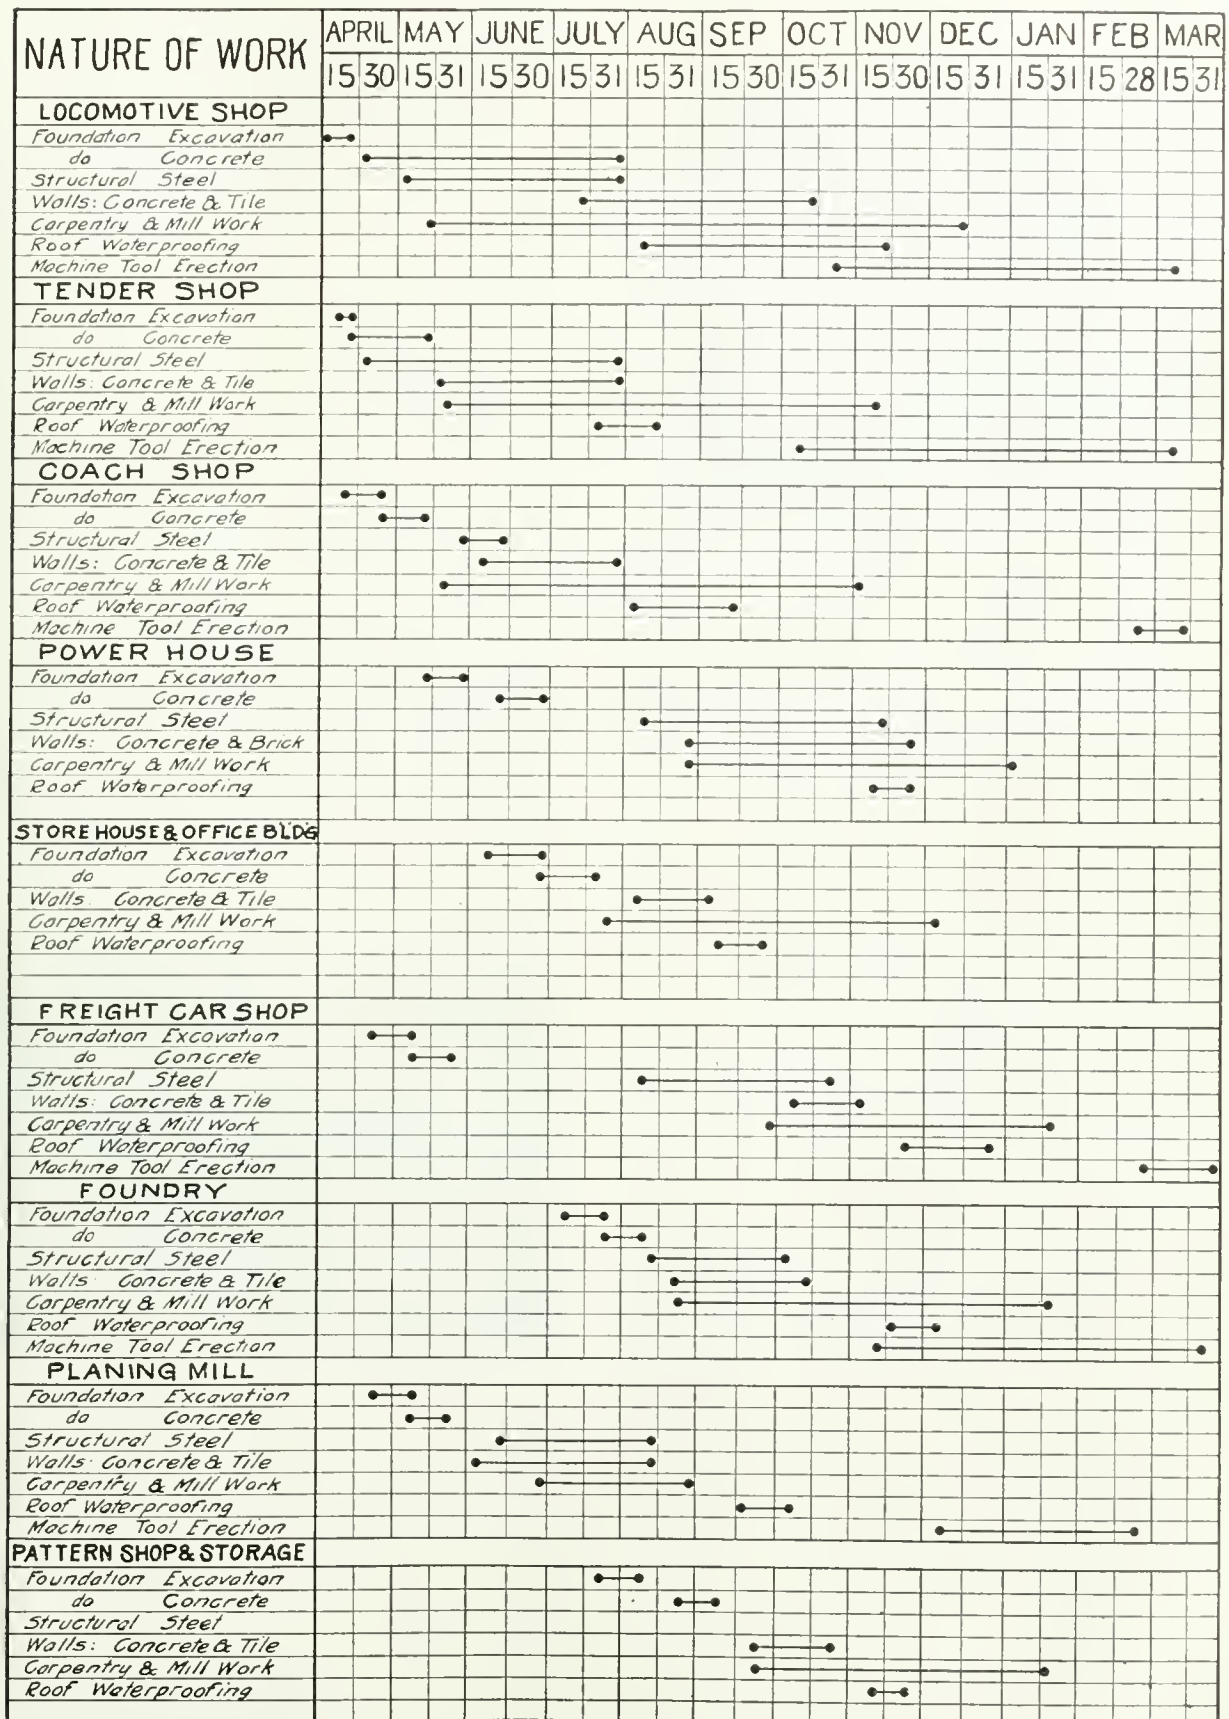 NATURE OF WORK
APRIL MAY JUNE JULY AUG SEP OCT NOV DEC JAN FEB MAR
15 30 15 31 15 30 15 31 15 31 15 30 15 31 15 30 15 31 15 31 15 28 15 31
LOCOMOTIVE SHOP
Foundation Excavation
do Concrete
Structural Steel
Walls: Concrete & Tile
Carpentry & Mill Work
Roof Waterproofing
Machine Tool Erection
TENDER SHOP
Foundation Excavation
do Concrete
Structural Steel
Walls: Concrete & Tile
Carpentry & Mill Work
Roof Waterproofing
Machine Tool Erection
COACH SHOP
Foundation Excavation
do Concrete
Structural Steel
Walls: Concrete & Tile
Carpentry & Mill Work
Roof Waterproofing
Machine Tool Erection
POWER HOUSE
Foundation Excavation
do Concrete
Structural Steel
Walls: Concrete & Brick
Carpentry & Mill Work
Roof Waterproofing
STORE HOUSE & OFFICE BLDG
Foundation Excavation
do Concrete
Walls Concrete & Tile
Carpentry & Mill Work
Roof Waterproofing
FREIGHT CAR SHOP
Foundation Excavation
do Concrete
Structural Steel
Walls: Concrete & Tile
Carpentry & Mill Work
Roof Waterproofing
Machine Tool Erection
FOUNDRY
Foundation Excavation
do Concrete
Structural Steel
Walls Concrete & Tile
Carpentry & Mill Work
Roof Waterproofing
Machine Tool Erection
PLANING MILL
Foundation Excavation
do Concrete
Structural Steel
Walls: Concrete & Tile
Carpentry & Mill Work
Roof Waterproofing
Machine Tool Erection
PATTERN SHOP & STORAGE
Foundation Excavation
do Concrete
Structural Steel
Walls: Concrete & Tile
Carpentry & Mill Work
Roof Waterproofing